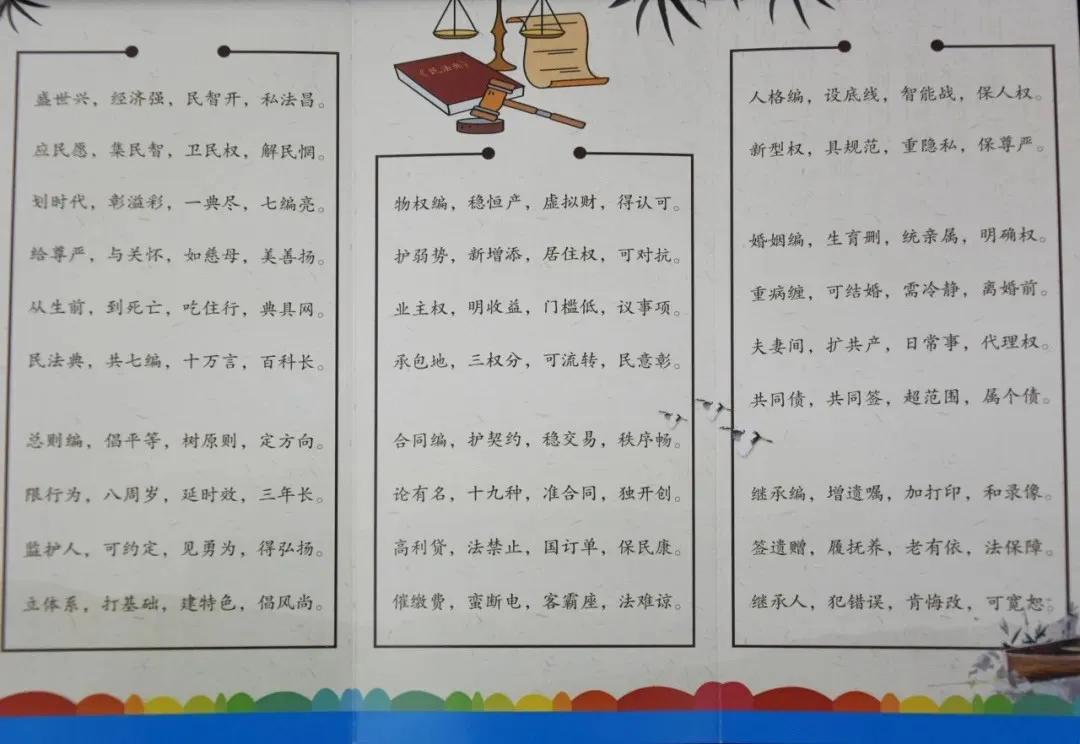 盛世兴，经济强，民智开，私法昌。
应民愿，集民智，卫民权，解民惘。
划时代，彰溢彩，一典尽，七编亮。
给尊严，与关怀，如慈母，美善扬。
从生前，到死亡，吃住行，典具网。
民法典，共七编，十万言，百科长。
总则编，倡平等，树原则，定方向。
限行为，八周岁，延时效，三年长。
监护人，可约定，见勇为，得弘扬。
立体系，打基础，建特色，倡风尚。
《民法典》
物权编，稳恒产，虚拟财，得认可。
护弱势，新增添，居住权，可对抗。
业主权，明收益，门槛低，议事项。
承包地，三权分，可流转，民意彰。
合同编，护契约，稳交易，秩序畅。
论有名，十九种，准合同，独开创。
高利贷，法禁止，国订单，保民康。
催缴费，蛮断电，客霸座，法难谅。
人格编，设底线，智能战，保人权。
新型权，具规范，重隐私，保尊严。
婚姻编，生育删，统亲属，明确权。
重病缠，可结婚，需冷静，离婚前。
夫妻间，扩共产，日常事，代理权。
共同债，共同签，超范围，属个债。
继承编，增遗嘱，加打印，和录像。
签遗赠，履抚养，老有依，法保障。
继承人，犯错误，肯悔改，可宽恕。